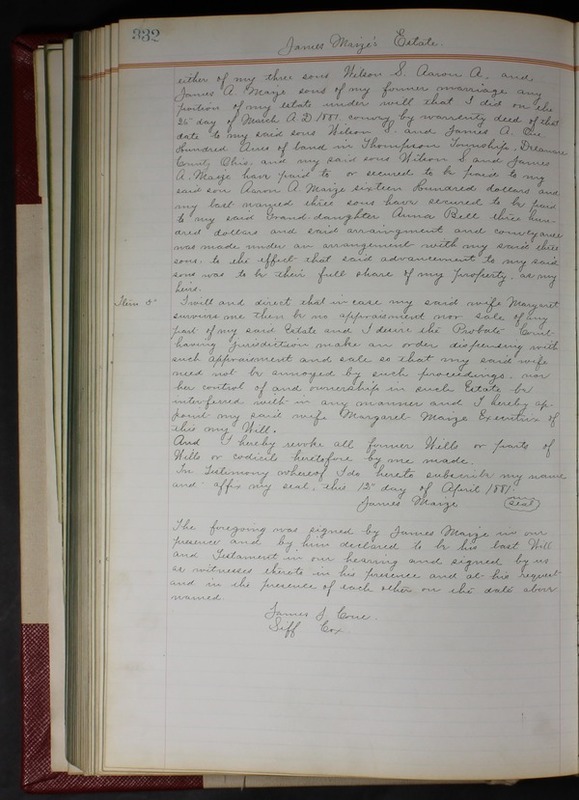 332
James Maize's Estate.
either of my three sons Wilson S. Aaron A. and
James A. Maize sons of my former marriage any
portion of my estate under will that I did on the
25" day of March A.D. 1881. convey by warrenty deed of that
date to my said sons Wilson S. and James A. One
Hundred Acres of land in Thompson Township,
County, Ohio. and my said sons Wilson S and James
A. Maize have paid to or secured to be paid to my
said son Aaron A. Maize sixteen hundred dollars and
my last named three sons have secured to be paid
to my said Grand-daughter Anna Bell three hun-
dred dollars and said arraingment and conveyance
was made under an arrangement with my said three
sons. to the effect that said advancement to my said
sons was to be their full share of my property. as my
heirs.
Item 3" I will and direct that in case my said wife Margaret
survives me then be no appraisment nor sale of any
part of my said Estate and I desire the Probate Court
having Jurisdiction make an order dispensing with
such appraisment and sale so that my said wife
need not be annoyed by such proceedings. nor
her control of and ownership in such Estate be
interferred with in any manner and I hereby ap-
point my said wife Margaret Maize Executrix of
this my Will.
And I hereby revoke all former Wills or parts of
Wills or codicils heretofore by me made.
In Testimony whereof I do hereto subscribe my name
and affix my seal, this 12" day of April 1881.
James Maize (seal)
The foregoing was signed by James Maize in our
presence and by him declared to be his last Will
and Testament in our hearing and signed by us
as witnesses thereto in his presence and at his request
and in the presence of each other on the date above
named
James
Cox